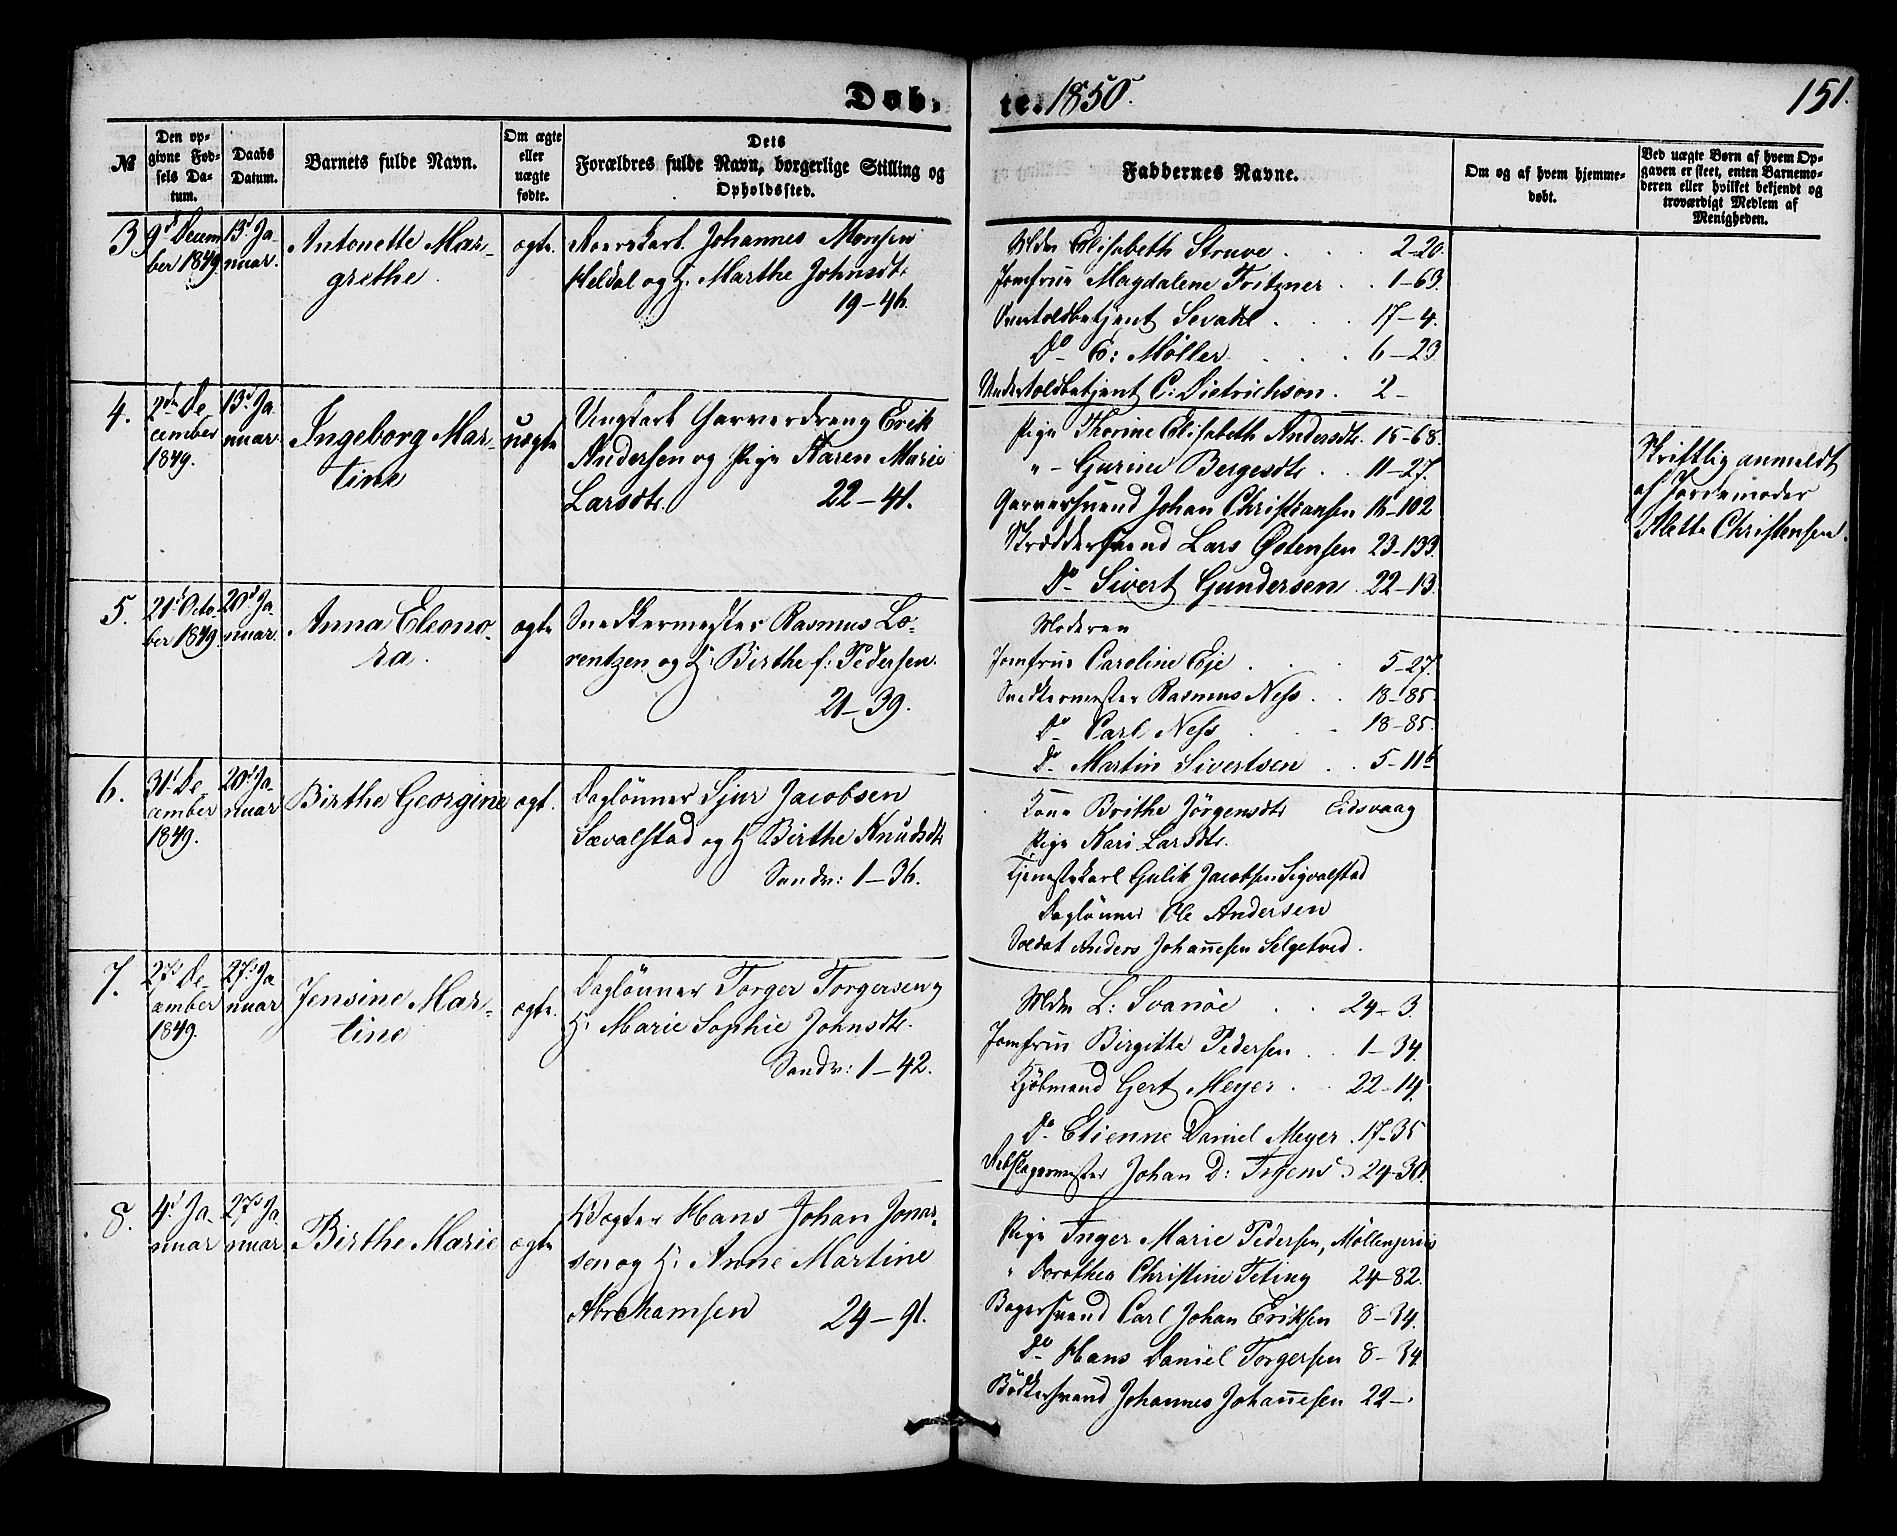 Døb-
te. 1850.
151.
№
Den op-
givne Fød-
sels Da-
tum.
Daabs
Datum.
Barnets fulde Navn.
Om ægte
eller
uægte
fødte.
Dets
Forældres fulde Navn, borgerlige Stilling og
Opholdssted.
Faddernes Navne.
Om og af hvem hjemme-
døbt.
Ved uægte Børn af hvem Op-
gaven er skeet, enten Barnemo-
deren eller hvilket bekjendt og
troværdigt Medlem af
Menigheden.
3
9d Decem
ber 1849.
13d Ja-
nuar.
Antonette Mar-
grethe.
ægte.
Johannes Monsen
Heldal og H. Marthe Johnsdt.
19-46.
Mdm Elisabeth Struve . . . 2-20.
Jomfrue Magdalene Fritzner . . 1-63.
Overtoldbetjent Sevahl . . . 17-4.
Do G: Møller . . . 6-23
Undertoldbetjent C: Dietrichson . 2-
4.
2den De-
cember
1849.
13d Ja-
nuar.
Ingeborg Mar-
tine
uægte
Ungkarl Garverdreng Erik
Andersen og Pige Karen Marie
Larsdtr. 22-41.
Pige Thorine Elisabeth Andersdtr. 15-68.
"- Gurine Bergesdtr . . 11-27.
Garversvend Johan Christiansen 16-102
Skræddersvend Lars Østensen 23-133.
Do Sivert Gundersen . 22-13.
Skriftlig anmeldt
af Jordemoder
Alette Christensen.
5.
21d Octo-
ber 1849.
20d Ja-
nuar.
Anna Eleono-
ra.
ægte
Snedkermester Rasmus Lo-
rentzen og H: Birthe f: Pedersen.
21-39.
Moderen
Jomfrue Caroline Eje . . . 5-27.
Snedkermester Rasmus Ness . . 18-85.
Do Carl Ness . . . 18-85.
Do Martin Sivertsen . . 5-11b
6.
31d De-
cember
1849.
20d Ja-
nuar
Birthe Georgine
ægt.
Daglønner Sjur Jacobsen
Sævalstad og H Birthe Knudsdtr
Sandv: 1-36.
Kone Brithe Jörgensdtr Eidsvaag
Pige Kari Larsdtr.
Tjenestekarl Gulik Jacobsen Sigvalstad
Daglönner Ole Andersen
Soldat Anders Johannesen Selgetved.
7.
27d De-
cember
1849.
27d Ja-
nuar
Jensine Mar-
tine
ægte.
Daglönner Torger Torgersen og
H: Marie Sophie Johnsdtr.
Sandv: 1-42.
Mdm L: Svanöe . . 24-3.
Jomfrue Birgitte Pedersen . . 1-34.
Kjöbmand Gert Meyer . 22-14.
Do Etienne Daniel Meyer . 17-35
Rebslagermester Johan D: Irgens 24-30.
8.
4d Ja-
nuar
27d Ja-
nuar.
Birthe Marie
ægte
Vægter Hans Johan Jonas-
sen og H: Anne Martine
Abrahamsen 24-91.
Pige Inger Marie Pedersen, Möllenpriis
" Dorothea Christine Teting 24-82.
Bagersvend Carl Johan Eriksen 8-34.
Do Hans Daniel Torgersen 8-34
Bödkersvend Johannes Johannesen 22-.